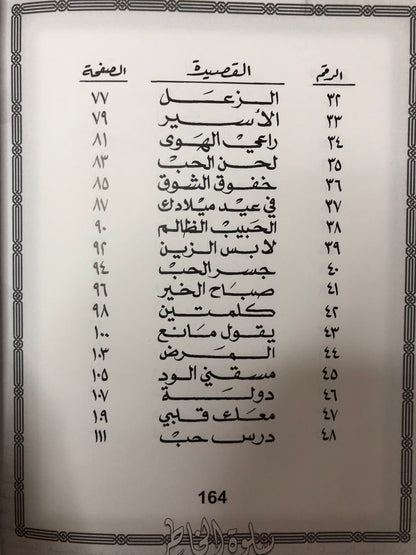 الرقم القصيدة الصفحة
٣٢ الزعل ٧٧
٣٣ الأسير ٧٩
٣٤ راعي الهوى ٨١
٣٥ لحن الحب ٨٣
٣٦ خفوق الشوق ٨٥
٣٧ في عيد ميلادك ٨٧
٣٨ الحبيب الظالم ٩٠
٣٩ لابس الزين ٩٢
٤٠ جسر الحب ٩٤
٤١ صباح الخير ٩٦
٤٢ كلمتين ٩٨
٤٣ يقول مانع ١٠٠
٤٤ المرض ١٠٣
٤٥ مسقني الود ١٠٥
٤٦ دولة ١٠٧
٤٧ معك قلبي ١٠٩
٤٨ درس حب ١١١
164
سلوة الخاطر